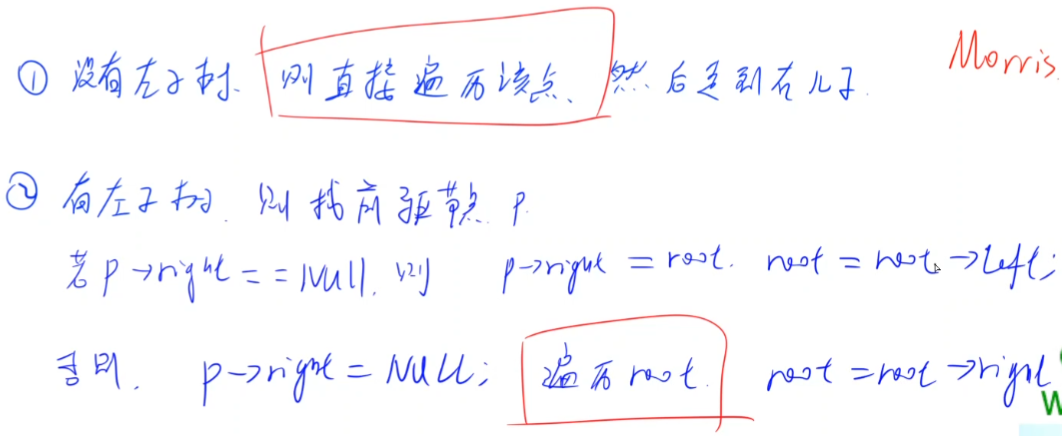 Morris
① 没有左子树、则直接遍历该点、然后走到右儿子.
② 有左子树. 则找前驱节点 p.
若 p→right == NULL, 则 p→right = root. root = root→left;
否则. p→right = NULL; 遍历 root. root = root→right
W